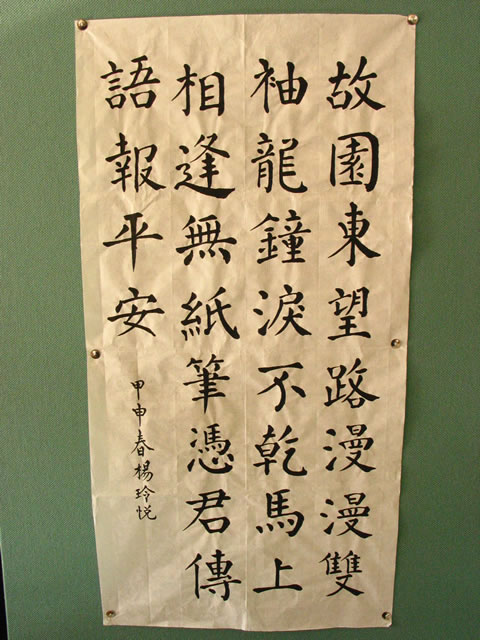 故園東望路漫漫雙
袖龍鐘淚不乾馬上
相逢無紙筆憑君傳
語報平安
甲申春楊玲悦